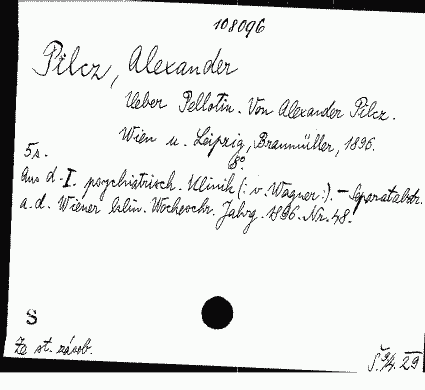 108096
Pilcz, Alexander
Ueber Pellotin. Von Alexander Pilcz.
Wien u. Leipzig, Braumüller, 1896.
8º.
5 s.
Aus d. I. psychiatrisch. Klinik (: v. Wagner :). – Separatabdr.
a. d. Wiener klin. Wochenschr. Jahrg. 1896. Nr. 48.
S
Ze st. zásob.
Š. 9/4. 29